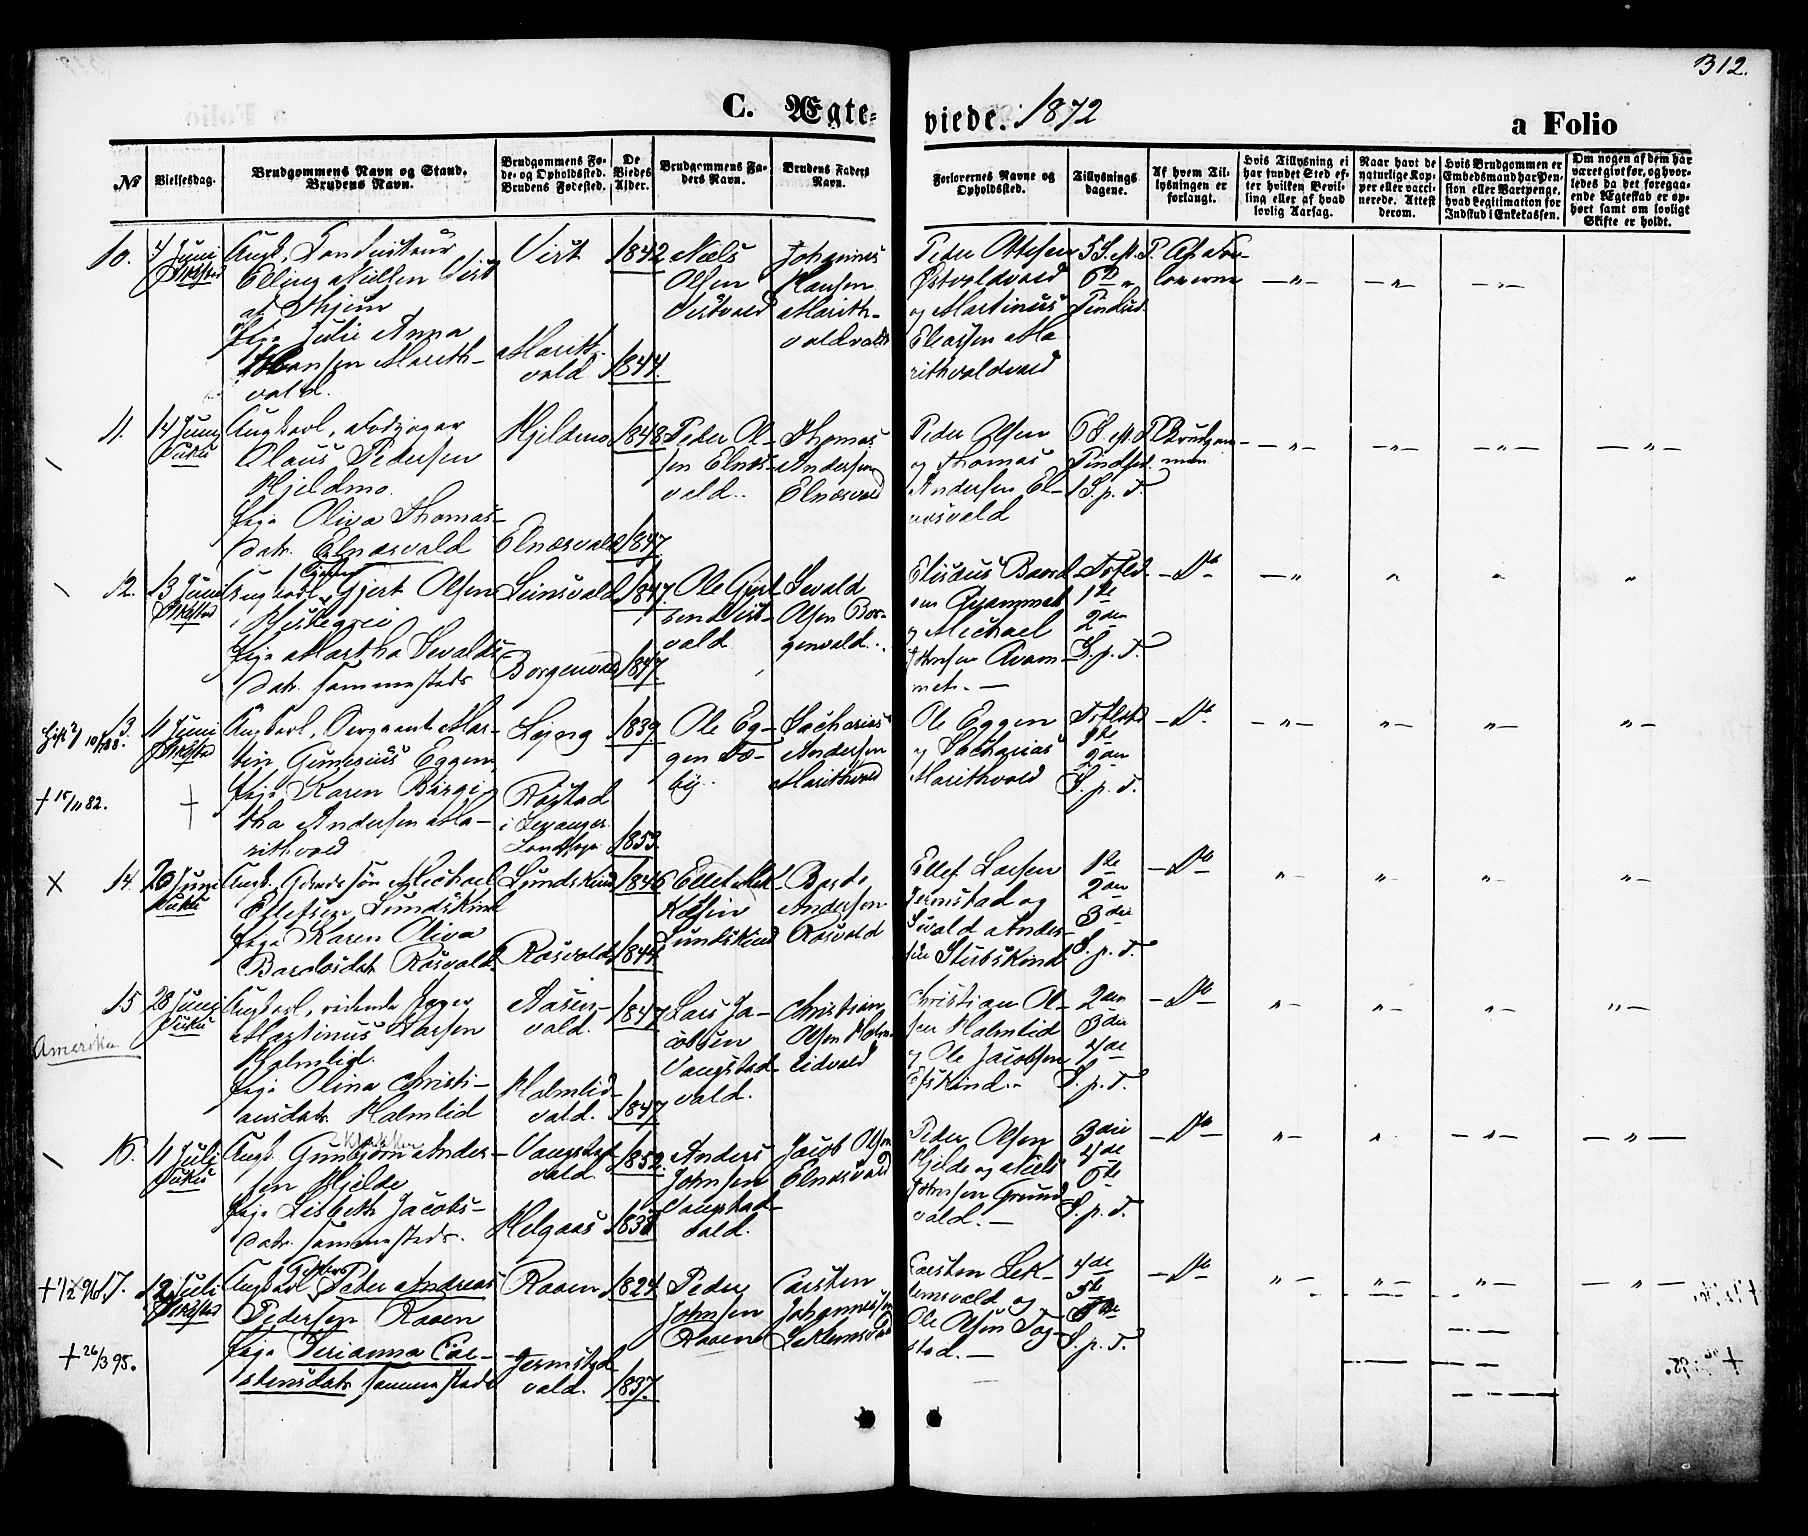 312.
C. Ægte-
viede. 1872
a Folio
No
Vielsesdag.
Brudgommens Navn og Stand.
Brudens Navn.
Brudgommens Fø-
de- og Opholdssted.
Brudens Fødested.
De
Viedes
Alder.
Brudgommens Fa-
ders Navn.
Brudens Faders
Navn.
Forlovernes Navne og
Opholdssted.
Tillysnings
dagene.
Af hvem Til-
lysningen er
forlangt.
Hvis Tillysning ei
har fundet Sted ef-
ter hvilken Bevil-
ling eller af hvad
lovlig Aarsag.
Naar havt de
naturlige Kop-
per eller vacci-
nerede. Attest
derom.
Hvis Brudgommen er
Embedsmand har Pen-
sion eller Vartpenge,
hvad Legitimation for
Indskud i Enkekassen.
Om nogen af dem har
været givt før, og hvor-
ledes da det foregaa-
ende Ægteskab er op-
hørt samt om lovligt
Skifte er holdt.
10.
4 Juni
Ungk. Landvisteur
Elling Nielsen Virt
af Skjien
Pige Julie Anna
Hansen Marith-
vald.
Virt
Marith-
vald
1842
1844.
Niels
Olsen
Virtvald
Johannes
Hansen
Marith-
valdvald
Peder Ottesen
Østvoldvald
og Martinus
Eliassen Ma
rithvaldvald
5 S. e. P.
6te "
Pindsd.
Af For-
loverne
— " —
— " —
— " —
11.
14 Juni
Vuku
Ungkarl, Nodjæger
Olaus Pedersen
Hjeldmo.
Pige Oliva Thomas-
datr. Elnæsvald
Hjeldmo
Elnæsvald
1848
1847.
Peder Ol-
sen Elnæs-
vald.
Thomas
Andersen
Elnæsvald
Peder Olsen
og Thomas
Andersen El-
næsvald
6 S. e. P.
Pindsd.
1 S. p. T.
Brudgom-
men
— " —
— " —
— " —
— " —
12.
13 Juni
Ungkarl Gjert Olsen
i Hustegrei
Pige Martha Sevalds-
datr. sammesteds
Leinsvald
Borgenvald
1847.
1847.
Ole Gjert
sen Virt-
vald
Sevald
Olsen Bor-
genvald.
Elisæus Baard
sen Qvammet
og Michael
Johnsen Qvam-
met. —
Trefld
1te
2den
S. p. T.
— Do
— "
"
"
"
13.
11 Juni
Ungkarl, Sergeant Mar-
tin Gunerius Eggen,
Pige Karen Birgi-
tha Andersen Ma-
rithvald
Lejng
Røstad
i Levanger
Landsogn
1839
1853.
Ole Eg-
gen Sø-
by.
Sacharias
Andersen
Marithvald
Ole Eggen
og Sacharias
Marithvald
Trefld
1te
2den
S. p. T.
— Do
— " —
" —
" —
" —
† 15/11 82.
†
X
14.
20 Juni
Vuku
Ungk. Gaardssøn Michael
Ellefsen Lundskind
Pige Karen Oliva
Bardosdat. Rosvald.
Lundskind
Rosvald
1846
1844.
Ellef
Lundskind
Bardo
Andersen
Rosvald
Ellef Larsen
Jermstad og
Sivald Ander-
sen Stubskind
1te
2den
3die
S. p. T.
— Do
" —
" —
" —
" —
15
28 Juni
Vuku
Ungkarl, ridende Jæger
Martinus Larsen
Holmlid.
Pige Olina Christi-
ansdatr. Holmlid
Aasen-
vald.
Holmlid-
vald.
1847
1847
Lars Ja-
cobsen
Vangstad-
vald.
Christian
Olsen Holm
lidvald
Christian Ol-
sen Holmlid
og Ole Jacobsen
Efskind.
2den
3die
4de
S. p. T.
— Do
" —
" —
" —
" —
Amerika
16.
11 Juli
Vuku
Ungk. Gunbjørn Ander-
sen Hjelde
Pige Lisbeth Jacobs-
datr. sammesteds.
Vangstad
vald.
Helgaas
1852.
1838
Anders
Johnsen
Vangstad-
vald.
Jacob Olsen
Elnæsvald
Peder Olsen
Hjelde og Niels
Johnsen Grund-
vald. —
3die
4de
5te
S. p. T.
— Do —
" —
"
— " —
— " —
17.
12 Juli
Ungkarl Peder Andreas
Pedersen Raaen
Pige Serianna Car-
stensdatr sammesteds
Raaen
Jermstad
vald.
1824
1837.
Peder
Johnsen
Raaen
Carsten
Johannessen
Leklemsvald
Carsten Lek-
lemsvald og
Ole Olsen Tog-
stad. —
4de
5te
6te
S. p. T.
— Do
" —
" —
" —
— " —
† 26/3 95.